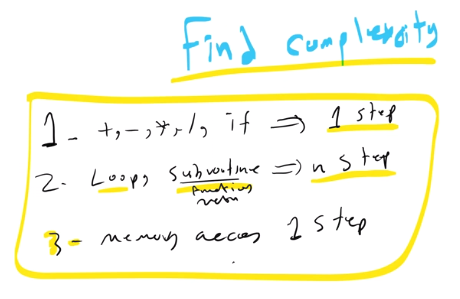 Find complexity
1- +, -, *, /, if => 1 step
2- Loop, subroutine => n step
function
3- memory access 1 step